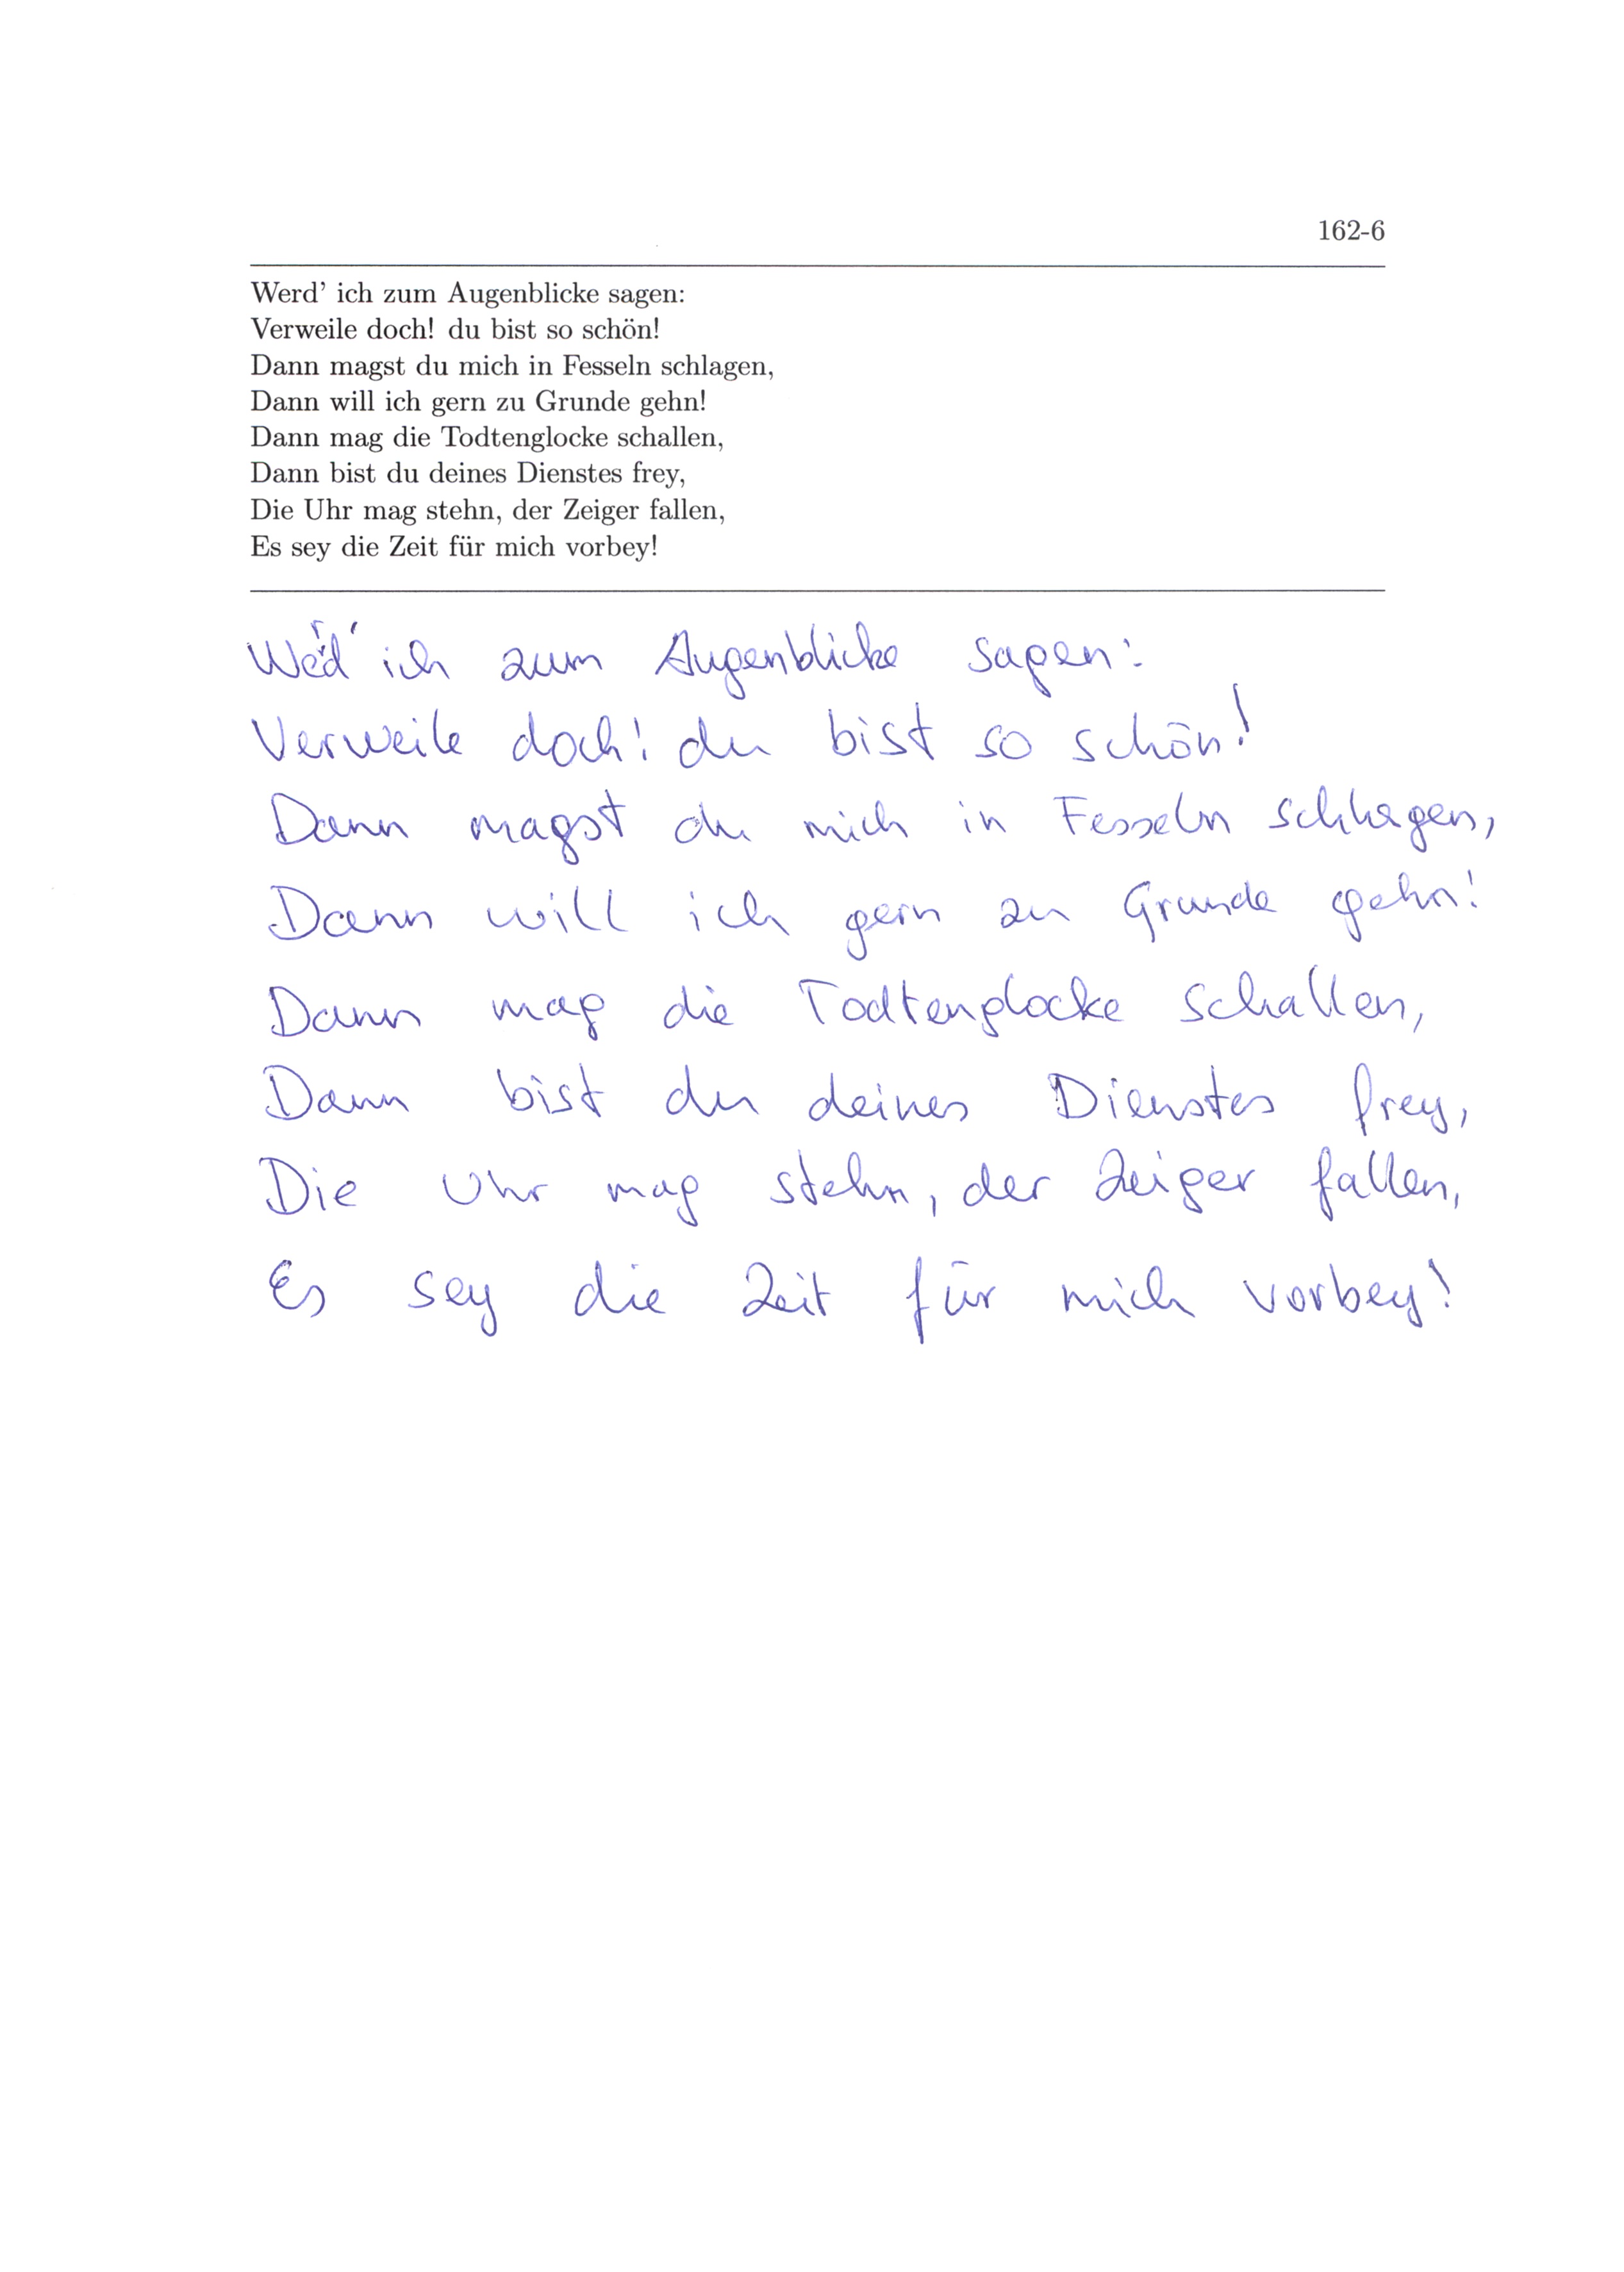 162-6
Werd' ich zum Augenblicke sagen:
Verweile doch! du bist so schön!
Dann magst du mich in Fesseln schlagen,
Dann will ich gern zu Grunde gehn!
Dann mag die Todtenglocke schallen,
Dann bist du deines Dienstes frey,
Die Uhr mag stehn, der Zeiger fallen,
Es sey die Zeit für mich vorbey!
Werd' ich zum Augenblicke sagen:
Verweile doch! du bist so schön!
Dann magst du mich in Fesseln schlagen,
Dann will ich gern zu Grunde gehn!
Dann mag die Todtenglocke schallen,
Dann bist du deines Dienstes frey,
Die Uhr mag stehn, der Zeiger fallen,
Es sey die Zeit für mich vorbey!